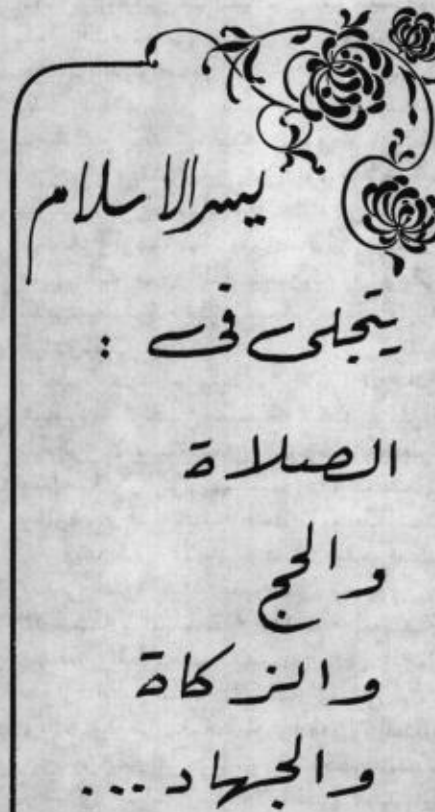 يسر الاسلام
يتجلى فى :
الصلاة
والحج
والزكاة
والجهاد ...